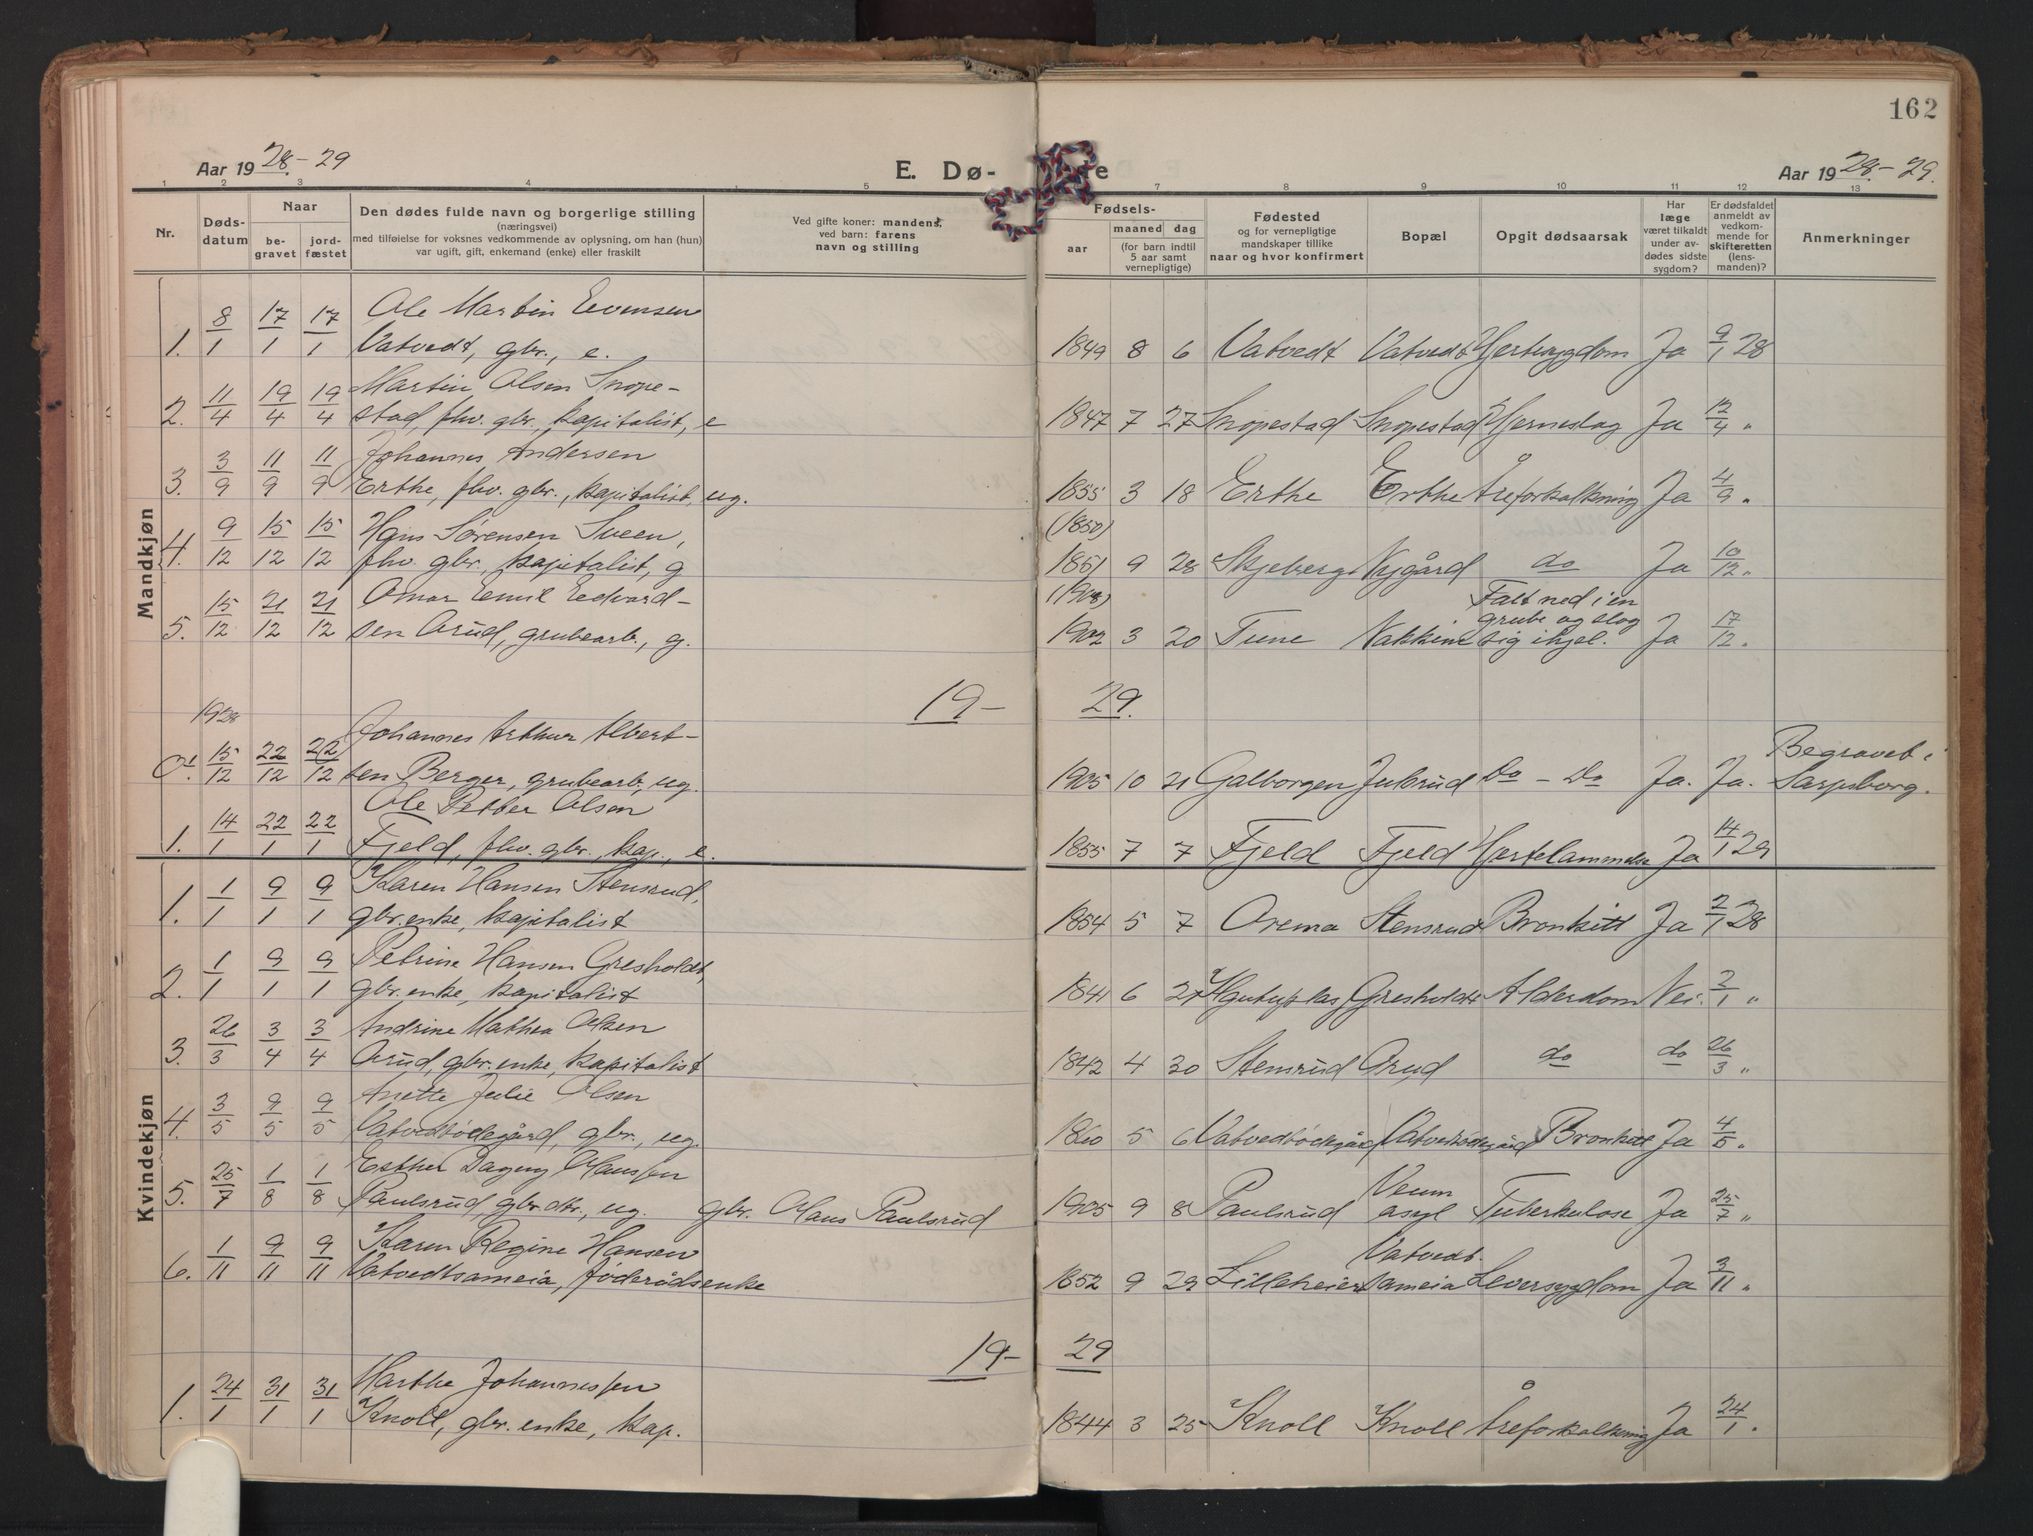 162
Aar 1928.-29
E. Dø-
re
Aar 1928.-29.
1 2 3 4 5 7 8 9 10 11 12 13
Nr.
Døds-
datum
Naar
be-
gravet
jord-
fæstet
Den dødes fulde navn og borgerlige stilling
(næringsvei)
med tilføielse for voksnes vedkommende av oplysning, om han (hun)
var ugift, gift, enkemand (enke) eller fraskilt
Ved gifte koner: mandens,
ved barn: farens
navn og stilling
Fødsels-
aar
maaned dag
(for barn indtil
5 aar samt
vernepligtige)
Fødested
og for vernepligtige
mandskaper tillike
naar og hvor konfirmert
Bopæl
Opgit dødsaarsak
Har
læge
været tilkaldt
under av-
dødes sidste
sygdom?
Er dødsfaldet
anmeldt av
vedkom-
mende for
skifteretten
(lens-
manden)?
Anmerkninger
Mandkjøn
8 17 17 Ole Martin Evensen
1. 1 1 1 Vatvedt, gbr., e. 1849 8 6 Vatvedt Vatvedt Hjertesygdom Ja 9/1 28
11 19 19 Martin Olsen Snope-
2. 4 4 4 stad, fhv. gbr., kapitalist, e 1847 7 27 Snopestad Snopestad Hjerneslag Ja 12/4 "
3 11 11 Johannes Andersen
3. 9 9 9 Erthe, fhv. gbr., kapitalist, ug. 1855 3 18 Erthe Erthe Åreforkalkning Ja 4/9 "
9 15 15 Hans Sørensen Sveen, (1850)
4. 12 12 12 fhv. gbr., kapitalist, g 1851 9 28 Skjeberg Nygård do Ja 10/12 "
15 21 21 Omar Emil Edvard- Falt ned i en
5. 12 12 12 sen Orud, grubearb., g. 1902 3 20 Tune grube og slog
sig ihjel. Ja 17/12 "
19- 29.
1928
15 22 22 Johannes Arthur Albert- Begravet i
0. 12 12 12 sen Berger, grubearb., ug. 1905 10 21 Galborgen Julsrud Do - Do Ja. Ja. Sarpsborg.
14 22 22 Ole Petter Olsen
1. 1 1 1 Fjeld, fhv. gbr., kap., e. 1855 7 7 Fjeld Fjeld Hjertelammelse Ja 14/1 29
Kvindekjøn
1 9 9 Karen Hansen Stensrud,
1. 1 1 1 gbr. enke, kapitalist 1854 5 7 Orema Stensrud Bronkitt Ja 2/1 28
1 9 9 Petrine Hansen Gresholdt,
2. 1 1 1 gbr. enke, kapitalist 1841 6 27 Gresholdt Alderdom Nei. 2/1 "
26 3 3 Andrine Mathea Olsen
3. 3 4 4 Orud, gbr. enke, kapitalist 1842 4 30 Stensrud Orud do do 26/3 "
3 9 9 Anette Julie Olsen
4. 5 5 5 Vatvedtødegård, gbr., ug. 1860 5 6 Vatvedtødegård Vatvedtødegård Bronkitt Ja 4/5 "
25 1 1 Esther Dagny Olaussen Veum
5. 7 8 8 Paulsrud, gbr.dtr., ug. gbr. Olaus Paulsrud 1905 9 8 Paulsrud asyl Tuberkulose Ja 25/7 "
1 9 9 Karen Regine Hansen Vatvedt
6. 11 11 11 Vatvedtsameia, føderådsenke 1852 9 29 Lilleheier sameia Leversygdom Ja 3/11 "
19- 29
24 31 31 Marthe Johannessen
1. 1 1 1 Knoll, gbr. enke, kap. 1844 3 25 Knoll Knoll Åreforkalkning Ja 24/1 "